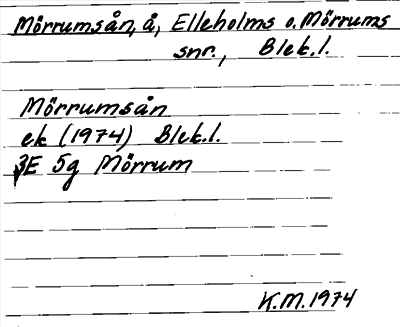 Mörrumsån, å, Elleholms o. Mörrums
snr., Blek.l.
Mörrumsån
ek (1974) Blek.l.
3E 5g Mörrum
K.M. 1974